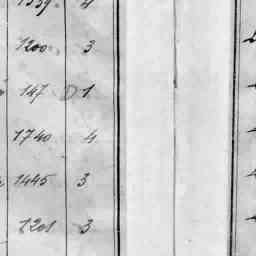 1339. 4
1200. 3
147 D 1
1740 4
1445 3
1201 3